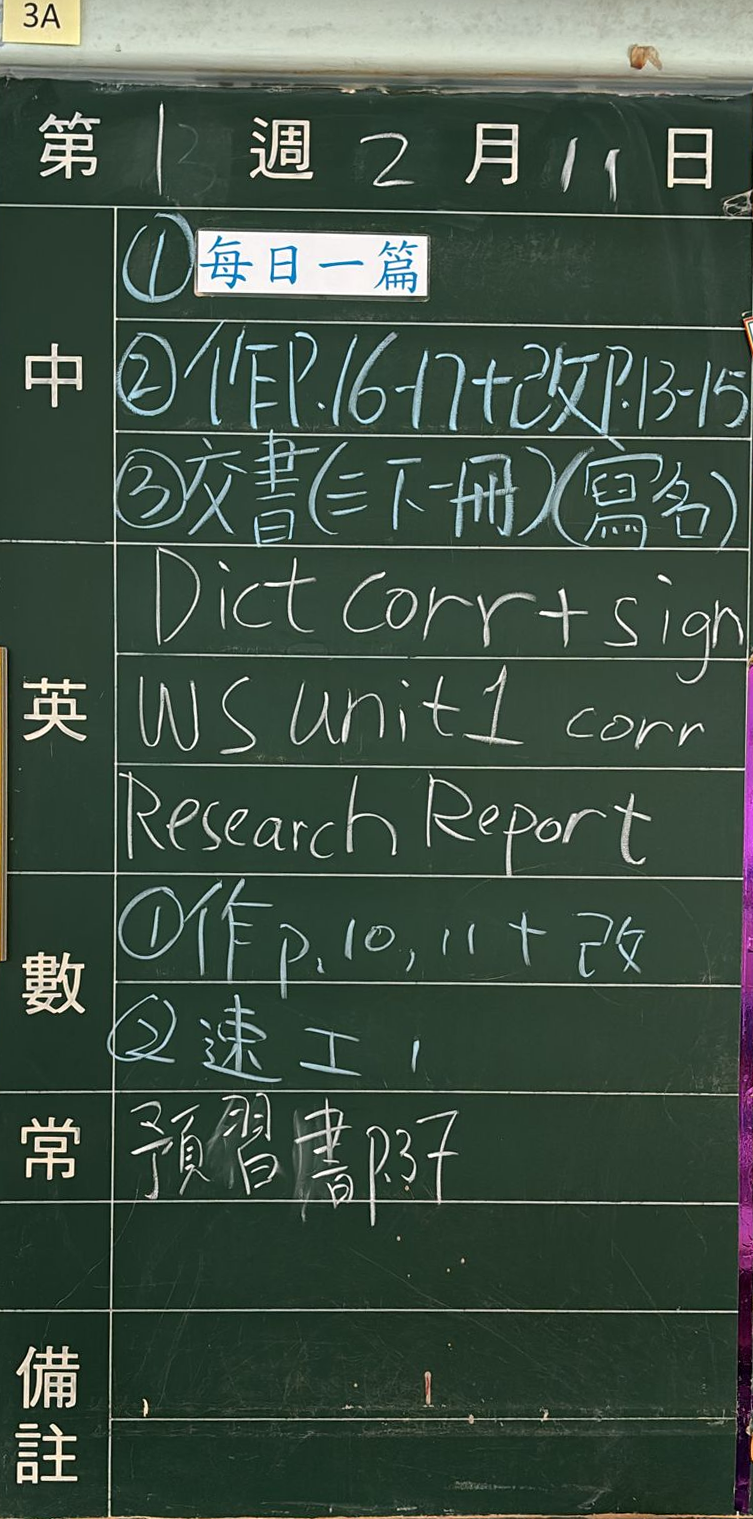 3A
第 1 週 2 月 11 日
中
①每日一篇
②作P.16-17+改P.13-15
③交書(三下一冊)(寫名)
英
Dict corr + sign
WS unit 1 corr
Research Report
數
①作p.10,11 + 改
②速工1
常
預習書p.37
備註